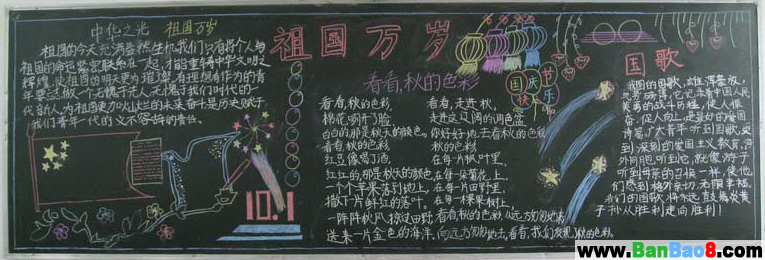 中华之光 祖国万岁
祖国的今天充满盎然生机,我们只有将个人与
祖国的命运紧密联系在一起,才能重铸中华文明之
辉煌,使祖国的明天更为璀璨。有理想有作为的青
年要立做一个无愧于先人,无愧于我们时代的一
代新人,为祖国更加灿烂的未来奋斗是历史赋于
我们青年一代的义不容辞的责任。
10.1
祖国万岁
国庆
快乐
看看,秋的色彩
看看,秋的色彩,
棉花哪开了脸
白白的,那是秋天的颜色。
看看,秋的色彩
红豆像喝了酒,
红红的,那是秋天的颜色,
一个个苹果落到地上,
撒下一片鲜红的落叶。
一阵阵秋风,掠过田野
送来一片金色的海洋。
看看,走进秋,
走进这辽阔的调色盘
你好好地去看秋的色彩
秋的色彩
在每一片枫叶里,
在每一朵菊花上,
在每一片田野里,
在每一棵果树上,
看看,秋的色彩从远方匆匆地来
向远方匆匆地去,看看,我们发现了秋的色彩。
国歌
我国的国歌,雄壮、浑厚、奋
它记录着中国人民
英勇的战斗历程,使人振
奋,促人向上,是最好的爱国
诗篇,广大青年听到国歌,受
到深刻的爱国主义教育,海
外同胞听到它,就像游子
听到母亲的召唤一样,使他
们感到格外亲切,无限幸福,
我们的国歌,将永远鼓舞炎黄
子孙从胜利走向胜利!
www.BanBao8.com